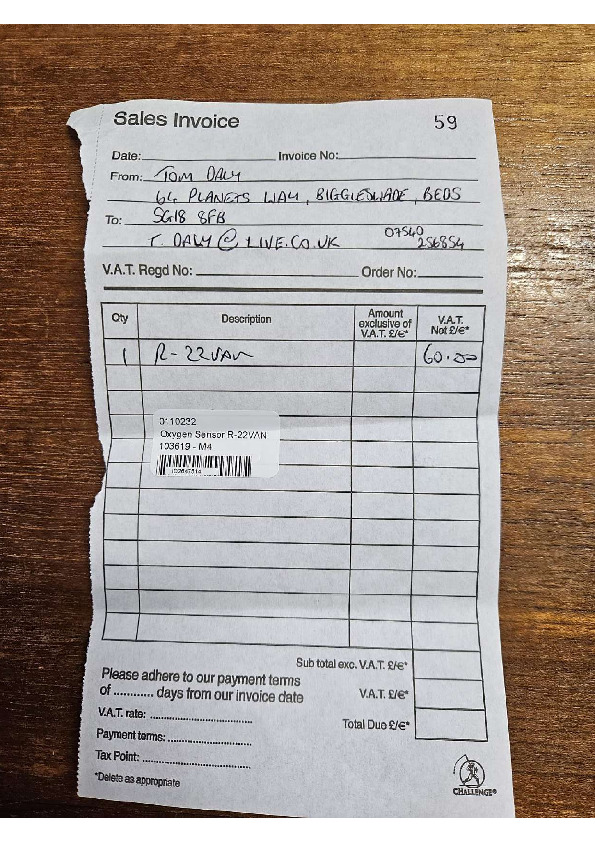 Sales Invoice 59
Date: Invoice No:
From: TOM DALY
64 PLANETS WAY, BIGGLESWADE, BEDS
To: SG18 8FB
T.DALY@LIVE.CO.UK 07540
256854
V.A.T. Regd No: Order No:
Qty Description Amount exclusive of V.A.T. £/€* V.A.T. Not £/€*
1 R-22VAN 60.00
0110232
Oxygen Sensor R-22VAN
103619 - M4
Sub total exc. V.A.T. £/€*
Please adhere to our payment terms
of ............ days from our invoice date
V.A.T. £/€*
V.A.T. rate:
Total Due £/€*
Payment terms:
Tax Point:
*Delete as appropriate
CHALLENGE®